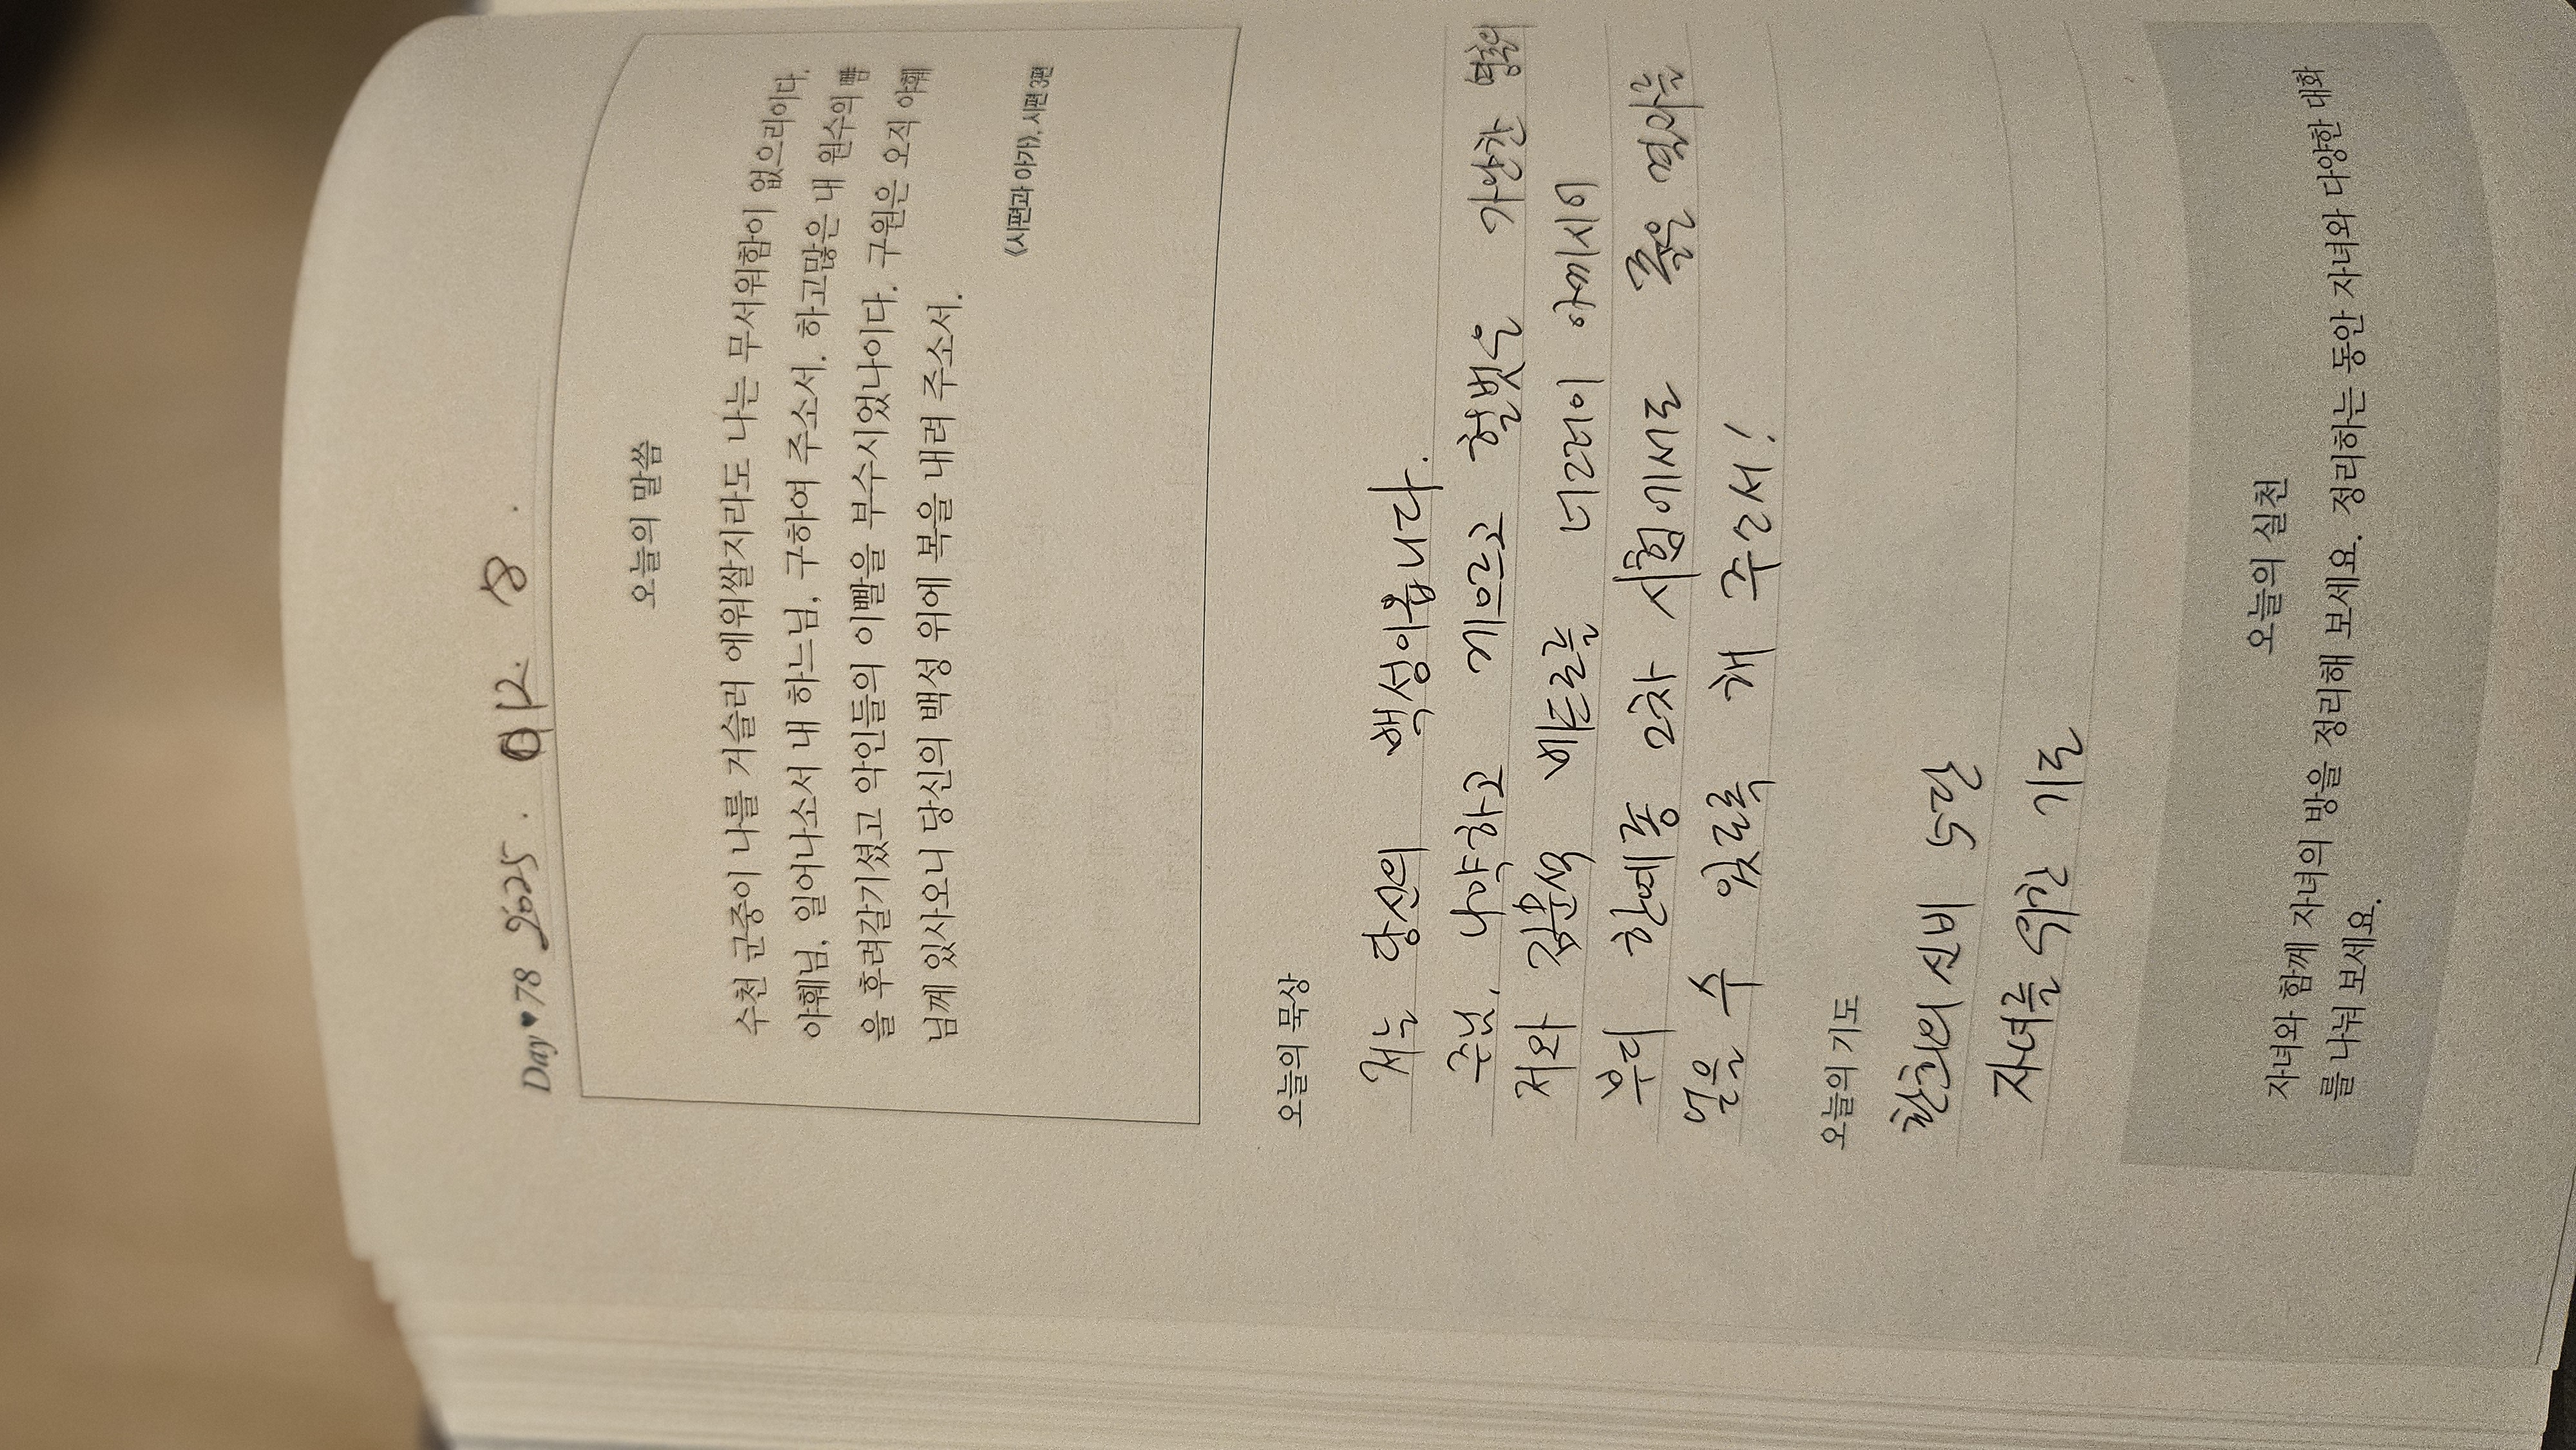 Day♥78 2025. 12. 8.
오늘의 말씀
수천 군중이 나를 거슬러 에워쌀지라도 나는 무서워함이 없으리이다.
야훼님, 일어나소서 내 하느님, 구하여 주소서. 하고많은 내 원수의 뺨
을 후려갈기셨고 악인들의 이빨을 부수시었나이다. 구원은 오직 야훼
님께 있사오니 당신의 백성 위에 복을 내려 주소서.
《시편과 아가》, 시편 3편
오늘의 묵상
저는 당신의 백성이옵니다.
주님, 나약하고 게으르고 헐벗은 가난한 영혼의
저와 김은석 베드로를 너그러이 아끼시어
부디 한예종 2차 시험에서도 좋은 결과를
얻을 수 있도록 해 주소서!
오늘의 기도
환희의 신비 5단
자녀를 위한 기도
오늘의 실천
자녀와 함께 자녀의 방을 정리해 보세요. 정리하는 동안 자녀와 다양한 대화
를 나눠 보세요.